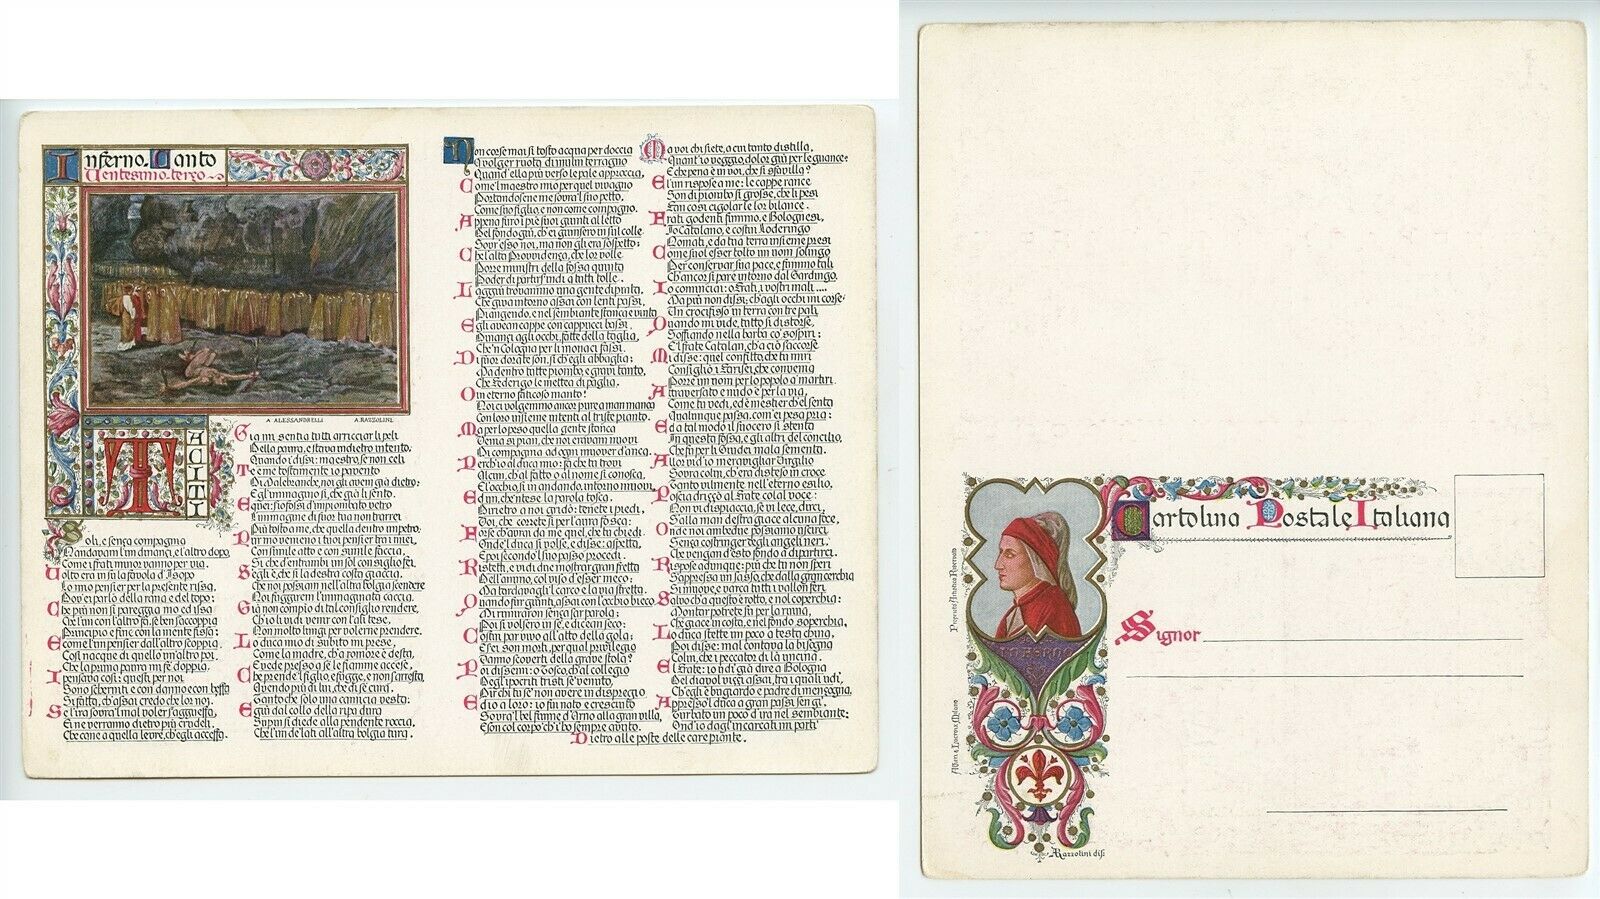 Inferno. Canto
Ventesimo-terzo
A. ALESSANDRELLI A. RAZZOLINI
TACITI
Soli, e senza compagnia
N'andavam l'un dinanzi, e l'altro dopo,
Come i frati minor vanno per via.
Volto era in su la favola d'Isopo
Lo mio pensier per la presente rissa,
Dov'ei parlò della rana e del topo:
Chè più non si pareggia mo ed issa
Che l'un con l'altro fa, se ben s'accoppia
Principio e fine con la mente fissa:
E come l'un pensier dall'altro scoppia,
Così nacque di quello un altro poi,
Che la prima paura mi fe' doppia.
I pensava così: questi per noi
Sono scherniti e con danno e con beffa
Sì fatta, ch'assai credo che lor noi.
Se l'ira sovra'l mal voler s'aggueffa,
Ei ne verranno dietro più crudeli,
Che cane a quella levre, ch'egli acceffa.
Già mi sentia tutti arricciar li peli
Della paura, e stava indietro intento,
Quando i' dissi: maestro, se non celi
Te e me tostamente, io pavento
Di Malebranche, noi gli avem già dietro:
Io gl'immagino sì, che già li sento.
E quei: s'io fossi d'impiombato vetro
L'immagine di fuor tua non trarrei
Più tosto a me, che quella dentro impetro.
Pur mo venieno i tuoi pensier tra i miei,
Con simile atto e con simile faccia,
Sì che d'entrambi un sol consiglio fei.
S'egli è, che sì la destra costa giaccia,
Che noi possiam nell'altra bolgia scendere
Noi fuggirem l'immaginata caccia.
Già non compio di tal consiglio rendere,
Ch'io li vidi venir con l'ali tese,
Non molto lungi per volerne prendere.
Lo duca mio di subito mi prese,
Come la madre, ch'a romore è desta,
E vede presso a se le fiamme accese,
Che prende'l figlio, e fugge, e non s'arresta
Avendo più di lui, che di sè cura,
Tanto che solo una camicia vesta:
E giù dal collo della ripa dura
Supin si diede alla pendente roccia,
Che l'un de' lati all'altra bolgia tura.
Non corse mai sì tosto acqua per doccia
A volger ruota di mulin terragno
Quand'ella più verso le pale approccia,
Come'l maestro mio per quel vivagno
Portandosene me sovra'l suo petto,
Come suo figlio, e non come compagno.
Appena furo i piè suoi giunti al letto
Del fondo giù, ch'ei giunsero in sul colle
Sovr'esso noi, ma non gli era sospetto:
Chè l'alta Provvidenza, che lor volle
Porre ministri della fossa quinta
Poder di partirs'indi a tutti tolle.
Laggiù trovammo una gente dipinta,
Che giva intorno assai con lenti passi,
Piangendo, e nel sembiante stanca e vinta
Egli avean cappe con cappucci bassi
Dinanzi agli occhi, fatte della taglia,
Che'n Cologna per li monaci fassi.
Di fuor dorate son, sì ch'egli abbaglia;
Ma dentro tutte piombo, e gravi tanto,
Che Federigo le mettea di paglia.
O in eterno faticoso manto!
Noi ci volgemmo ancor pure a man manca
Con loro insieme intenti al tristo pianto.
Ma per lo peso quella gente stanca
Venia sì pian, che noi eravam nuovi
Di compagnia ad ogni muover d'anca.
Perch'io al duca mio: fa che tu trovi
Alcun, ch'al fatto o al nome si conosca,
E l'occhio, sì in andando, intorno muovi
Ed un, che'ntese la parola tosca,
Dirietro a noi gridò: tenete i piedi,
Voi, che correte sì per l'aura fosca:
Forse ch'avrai da me quel, che tu chiedi:
Onde'l duca si volse, e disse: aspetta,
E poi secondo'l suo passo procedi.
Ristetti, e vidi due mostrar gran fretta
Dell'animo, col viso d'esser meco:
Ma tardavagl'l carco e la via stretta.
Quando fur giunti, assai con l'occhio bieco
Mi rimiraron senza far parola:
Poi si volsero in sè, e dicean seco:
Costui par vivo all'atto della gola:
E s'ei son morti, per qual privilegio
Vanno scoverti della grave stola?
Poi dissermi: o Tosco, ch'al collegio
Degl'ipocriti tristi se' venuto,
Dir chi tu se' non avere in dispregio
Ed io a loro: io fui nato e cresciuto
Sovra'l bel fiume d'Arno alla gran villa,
E son col corpo ch'i' ho sempre avuto.
Ma voi chi siete, a cui tanto distilla,
Quant'io veggio, dolor giù per le guance:
E che pena è in voi, che sì sfavilla?
E l'un rispose a me: le cappe rance
Son di piombo sì grosse, che li pesi
Fan così cigolar le lor bilance.
Frati godenti fummo, e Bolognesi,
Io Catalano, e costui Loderingo
Nomati, e da tua terra insieme presi
Come suol esser tolto un uom solingo
Per conservar sua pace, e fummo tali
Ch'ancor si pare intorno dal Gardingo.
Io cominciai: o Frati, i vostri mali ....
Ma più non dissi: ch'agli occhi mi corse
Un crocifisso in terra con tre pali
Quando mi vide, tutto si distorse,
Soffiando nella barba co' sospiri:
E'l frate Catalan, ch'a ciò s'accorse
Mi disse: quel confitto, che tu miri
Consigliò i Farisei, che convenia
Porre un uom per lo popolo a' martiri.
Attraversato e nudo è per la via,
Come tu vedi, ed è mestier ch'el senta
Qualunque passa, com'ei pesa pria:
E da tal modo il suocero si stenta
In questa fossa, e gli altri del concilio,
Che fu per li Giudei mala sementa.
Allor vid'io meravigliar Virgilio
Sovra colui, ch'era disteso in croce
Tanto vilmente nell'eterno esilio,
Poscia drizzò al Frate cotal voce:
Non vi dispiaccia, se vi lece, dirci,
S'alla man destra giace alcuna foce,
Onde noi ambedue possiamo uscirci
Senza costringer degli angeli neri,
Che vengan d'esto fondo a dipartirci.
Rispose adunque: più che tu non speri
S'appressa un sasso, che dalla gran cerchia
Si muove e varca tutti i vallon feri
Salvo ch'a questo è rotto, e nol coperchia:
Montar potrete su per la ruina,
Che giace in costa, e nel fondo soperchia,
Lo duca stette un poco a testa china,
Poi disse: mal contava la bisogna
Colui, che i peccator di là uncina.
E'l Frate: io udi' già dire a Bologna
Del diavol vizii assai, tra i quali udi',
Ch'egli è bugiardo e padre di menzogna,
Appresso'l duca a gran passi sen gì
Turbato un poco d'ira nel sembiante:
Ond'io dagl'incarcati mi parti'
Dietro alle poste delle care piante.
Cartolina Postale Italiana
Signor
INFERNO
Proprietà Artistica Riservata
Alfieri & Lacroix, Milano
A Razzolini dis.